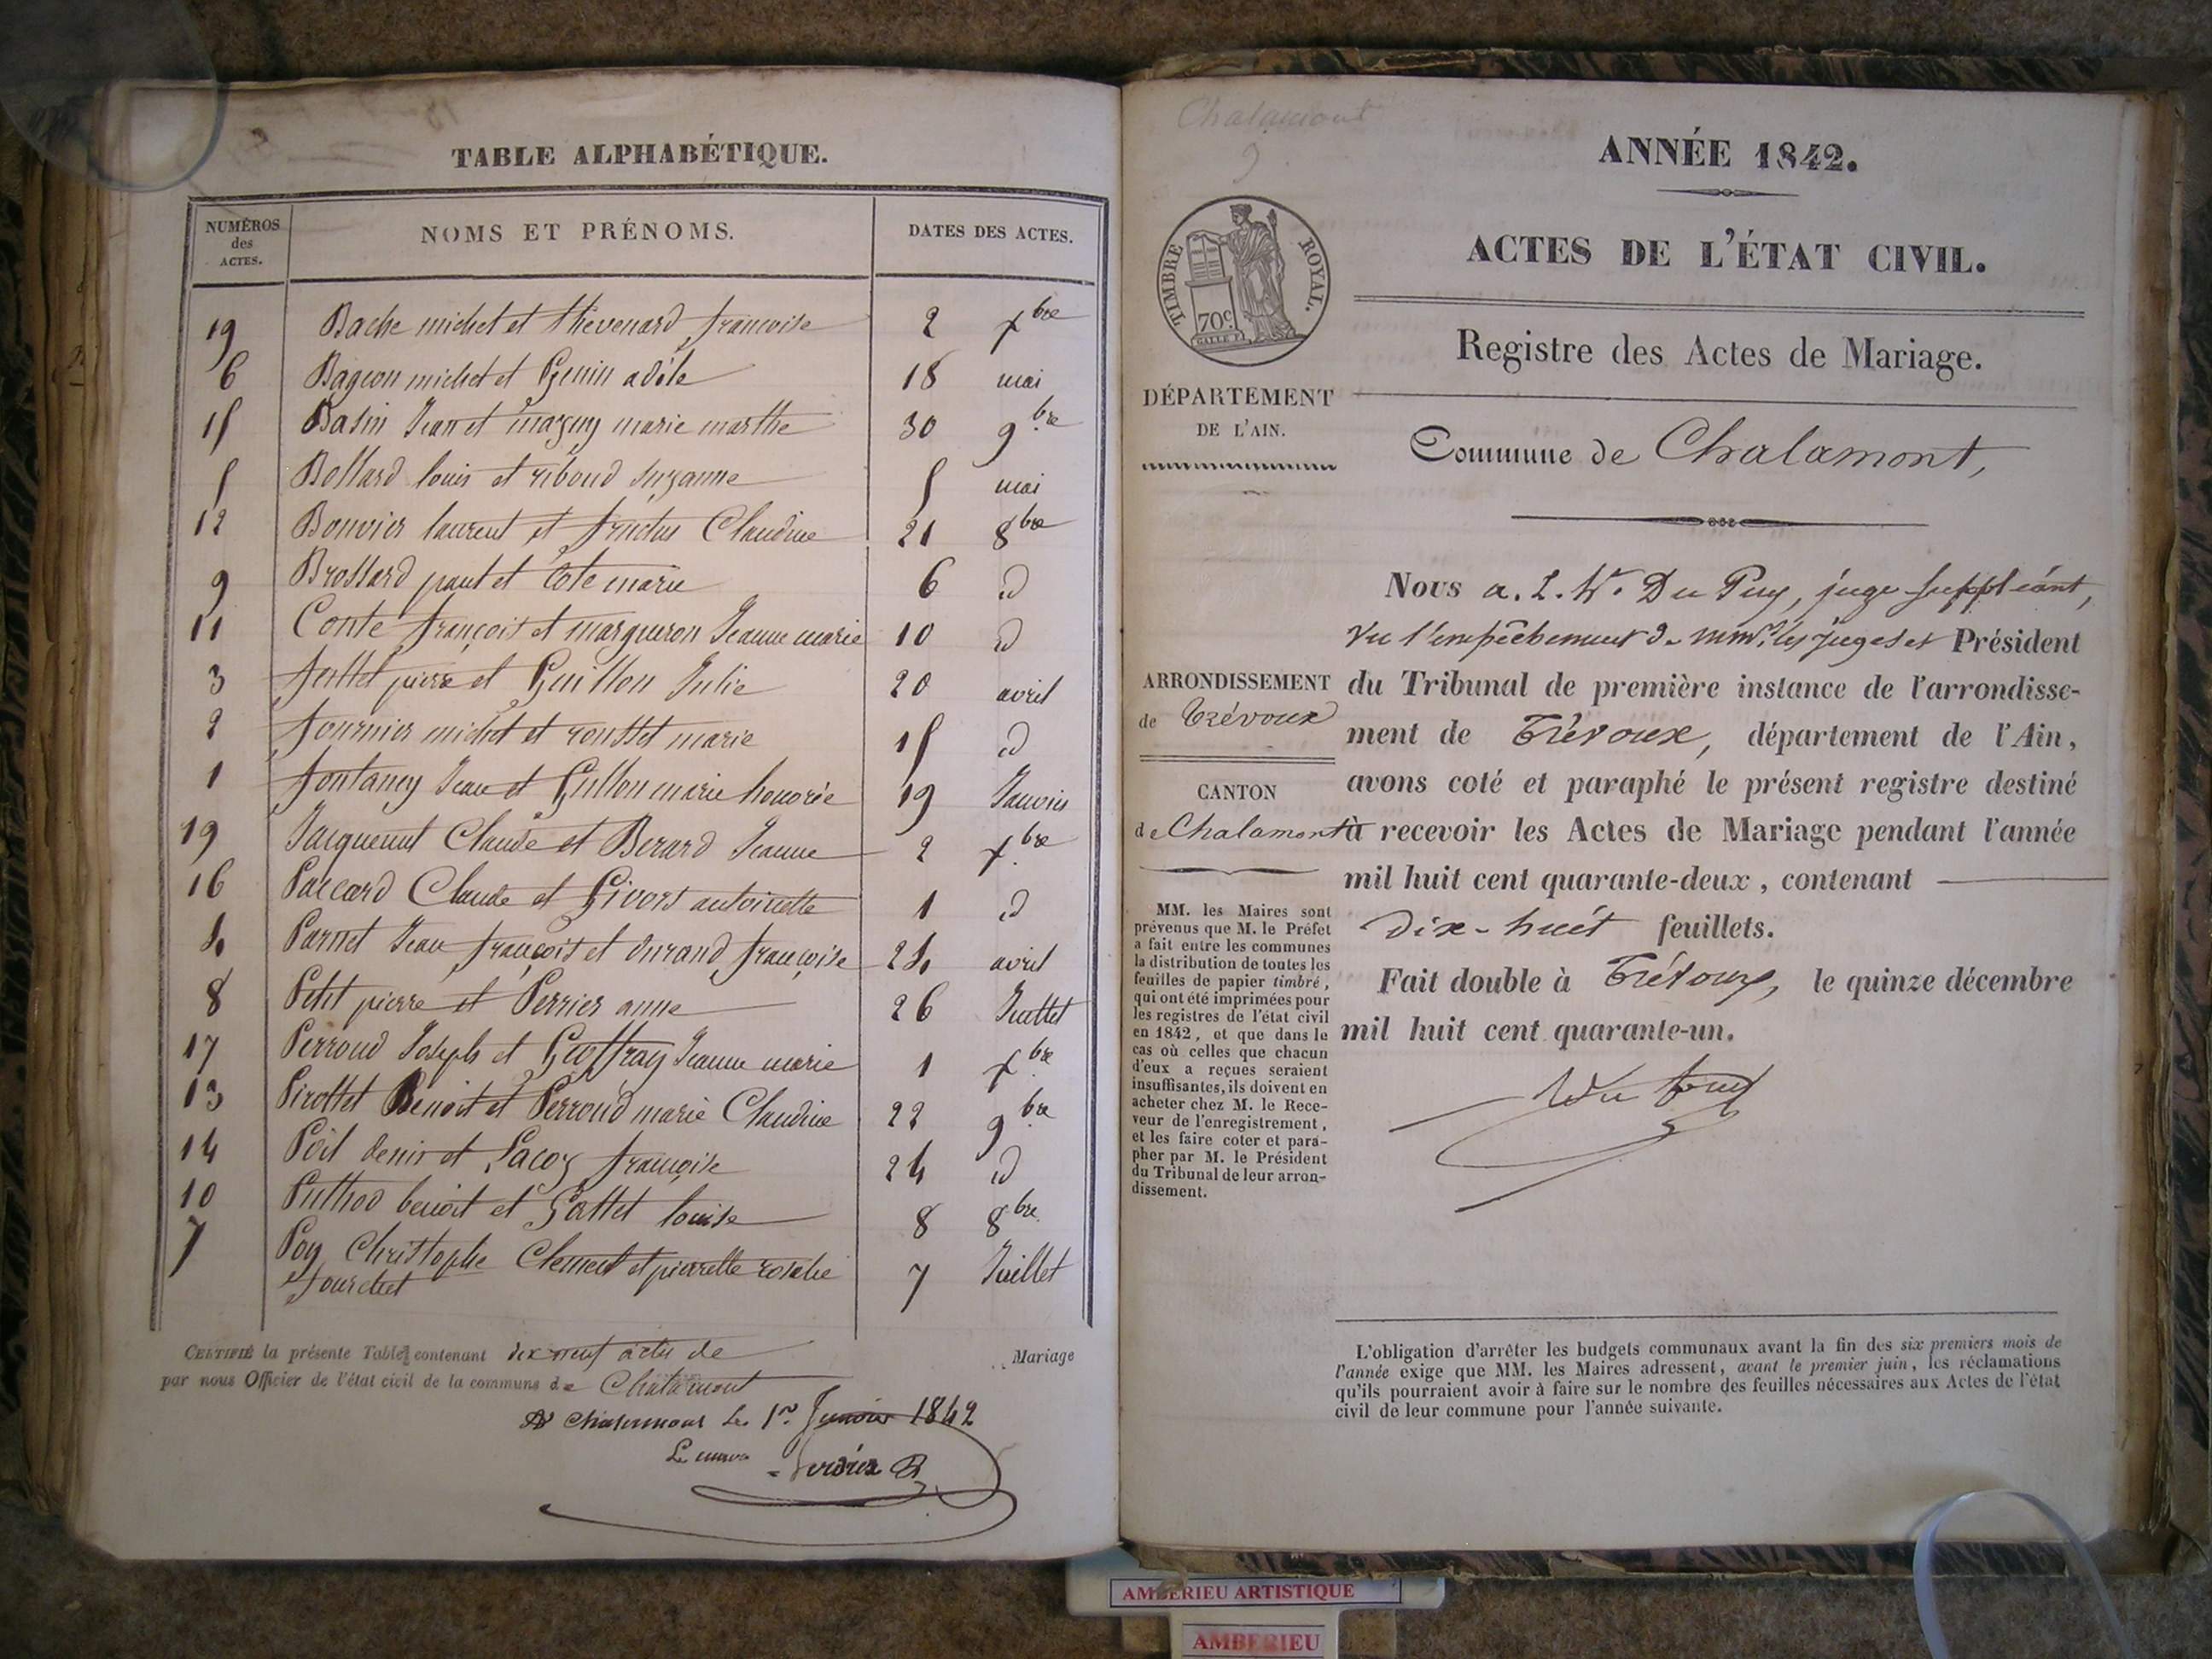 TABLE ALPHABÉTIQUE.
NUMÉROS des ACTES.
NOMS ET PRÉNOMS.
DATES DES ACTES.
19 Bache michel et thevenard françoise 2 xbre
6 Bageon michel et Genin adèle 18 mai
15 Basin Jean et mazuy marie marthe 30 9bre
5 Bollard louis et riboud suzanne 5 mai
12 Bouvier laurent et fructus Claudine 21 8bre
9 Brossard paul et Cote marie 6 id
11 Conte françois et margueron Jeanne marie 10 id
3 pierre et Guillon Julie 20 avril
2 fournier michel et rousset marie 15 id
1 fontaney Jean et Gullon marie honorée 19 Janvier
19 Jacquenut Claude et Berard Jeanne 2 xbre
16 Paccard Claude et Givors antoinette 1 id
4 Parnet Jean françois et durand françoise 24 avril
8 Petit pierre et Perrier anne 26 Juillet
17 Perroud Joseph et Geoffray Jeanne marie 1 xbre
13 Pirollet Benoit et Perroud marie Claudine 22 9bre
14 Poil denis et Lacoz françoise 24 id
10 Puthod benoit et Gattet louise 8 8bre
7 Poy Christophe Clement et pierrette rosalie 7 Juillet
fourchet
CERTIFIÉ la présente Table contenant dix neuf actes de Mariage
par nous Officier de l'état civil de la commune de Chalamont
A Chalamont le 1er Janvier 1842
Le maire
Chalamont
9
ANNÉE 1842.
TIMBRE ROYAL.
70c
ACTES DE L'ÉTAT CIVIL.
Registre des Actes de Mariage.
DÉPARTEMENT
DE L'AIN.
Commune de Chalamont,
ARRONDISSEMENT
de Trévoux
CANTON
de Chalamont
MM. les Maires sont
prévenus que M. le Préfet
a fait entre les communes
la distribution de toutes les
feuilles de papier timbré,
qui ont été imprimées pour
les registres de l'état civil
en 1842, et que dans le
cas où celles que chacun
d'eux a reçues seraient
insuffisantes, ils doivent en
acheter chez M. le Rece-
veur de l'enregistrement,
et les faire coter et para-
pher par M. le Président
du Tribunal de leur arron-
dissement.
Nous a. L. W. Du Puy, juge suppléant,
Vu l'empêchement de MM. les juges et Président
du Tribunal de première instance de l'arrondisse-
ment de Trévoux, département de l'Ain,
avons coté et paraphé le présent registre destiné
à recevoir les Actes de Mariage pendant l'année
mil huit cent quarante-deux, contenant
dix-huit feuillets.
Fait double à Trévoux, le quinze décembre
mil huit cent quarante-un.
Du Puy
L'obligation d'arrêter les budgets communaux avant la fin des six premiers mois de
l'année exige que MM. les Maires adressent, avant le premier juin, les réclamations
qu'ils pourraient avoir à faire sur le nombre des feuilles nécessaires aux Actes de l'état
civil de leur commune pour l'année suivante.
AMBERIEU ARTISTIQUE
AMBERIEU